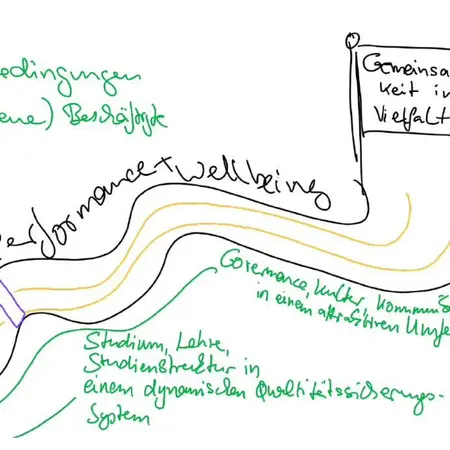 edingungen
ene) Beschäftigte
Performance + Wellbeing
Gemeinsa
keit in
Vielfalt
Governance, Kultur, Kommuni
in einem attraktiven Umfe
Studium, Lehre,
Studienstruktur in
einem dynamischen Qualitätssicherungs-
System